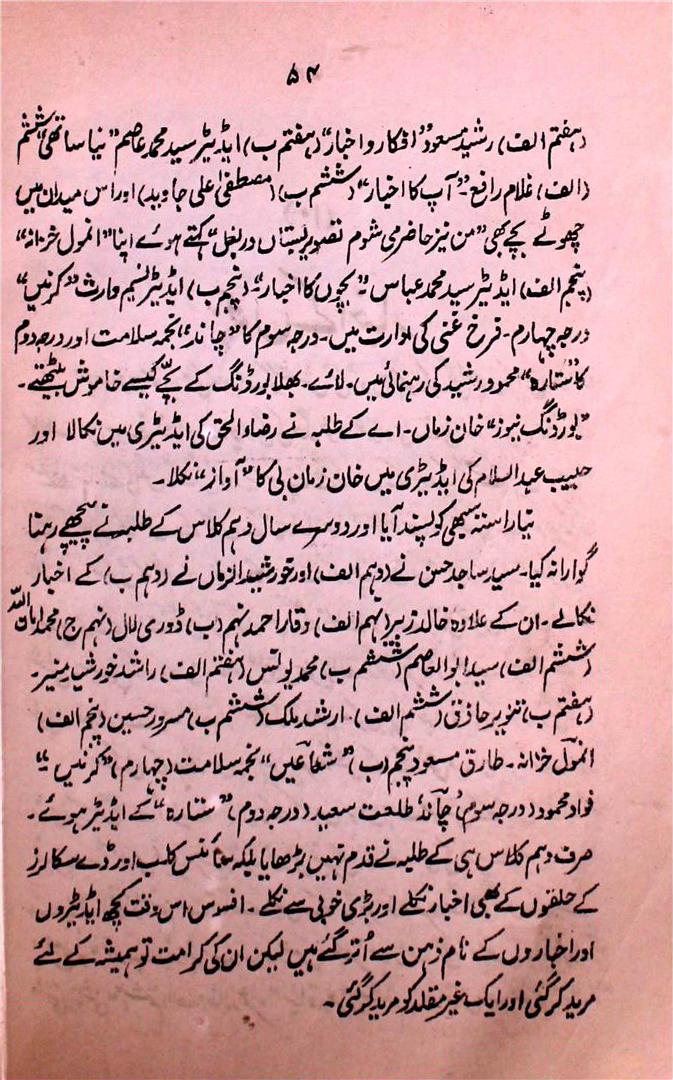 ۵۴
(ہفتم الف) رشید مسعود "افکار و اخبار" (ہفتم ب) ایڈیٹر سید محمد عاصم "نیا ساتھی" ششم
(الف) غلام رافع۔ "آپ کا اخبار" (ششم ب) (مصطفیٰ علی جاوید) اور اس میدان میں
چھوٹے بچے بھی "من نیز حاضر می شوم تصویر بتاں در بغل" کہتے ہوئے اپنا "انمول خزانہ"
(پنجم الف) ایڈیٹر سید محمد عباس۔ "بچوں کا اخبار"۔ (پنجم ب) ایڈیٹر نسیم وارث "کرنیں"
درجہ چہارم۔ فرخ غنی کی ادارت میں۔ درجہ سوم کا "چاند" نجمہ سلامت اور درجہ دوم
کا "ستارہ" محمود رشید کی رہنمائی میں۔ لائے۔ بھلا بورڈنگ کے بچّے کیسے خاموش بیٹھتے۔
"بورڈنگ نیوز" خان زماں۔ اے کے طلبہ نے رضاء الحق کی ایڈیٹری میں نکالا اور
حبیب عبدالسلام کی ایڈیٹری میں خان زمان بی کا "آواز" نکلا۔
نیا راستہ سبھی کو پسند آیا اور دوسرے سال دہم کلاس کے طلبہ نے پیچھے رہنا
گوارا نہ کیا۔ سید ساجد حسن نے (دہم الف) اور خورشید الزماں نے (دہم ب) کے اخبار
نکالے۔ ان کے علاوہ خالد زبیر (نہم الف) وقار احمد نہم (ب) ڈوری لال (نہم ج) محمد امان اللہ
(ششم الف) سید ابوالعاصم (ششم ب) محمد یونس (ہفتم الف) راشد خورشید منیر۔
(ہفتم ب) تنویر حاذق (ششم الف)۔ ارشد ملک (ششم ب) مسرور حسین (پنجم الف)
انمول خزانہ۔ طارق مسعود پنجم (ب) "شعاعیں" نجمہ سلامت (چہارم) "کرنیں"۔
فواد محمود (درجہ سوم) چاند طلعت سعید (درجہ دوم) "ستارہ" کے ایڈیٹر ہوئے۔
صرف دہم کلاس ہی کے طلبہ نے قدم نہیں بڑھایا بلکہ سائنس کلب اور ڈے سکالرز
کے حلقوں کے بھی اخبار نکلے اور بڑی خوبی سے نکلے۔ افسوس اس وقت کچھ ایڈیٹروں
اور اخباروں کے نام ذہن سے اُتر گئے ہیں لیکن ان کی کرامت تو ہمیشہ کے لئے
مرید کر گئی اور ایک غیر مقلد کو مرید کر گئی۔